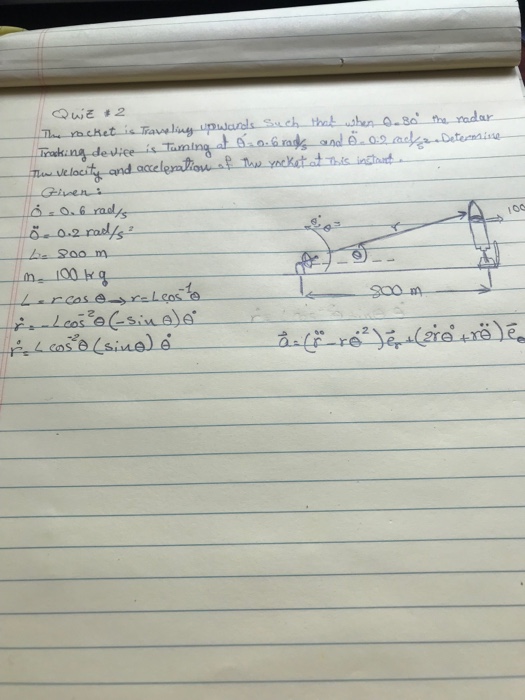 Quiz #2
The rocket is Traveling upwards Such that when θ=30° The radar
Tracking device is Turning at θ̇=0.6 rad/s and θ̈=0.2 rad/s². Determine
The velocity and acceleration of The rocket at This instant.
Given:
θ̇=0.6 rad/s
θ̈=0.2 rad/s²
L=800 m
m=100 kg
L=r cos θ → r=L cos⁻¹θ
ṙ=-L cos⁻²θ (-sin θ) θ̇
ṙ=L cos⁻²θ (sin θ) θ̇
r
100
θ
800 m
a⃗=(r̈-rθ̇²)e⃗r+(2ṙθ̇+rθ̈)e⃗θ